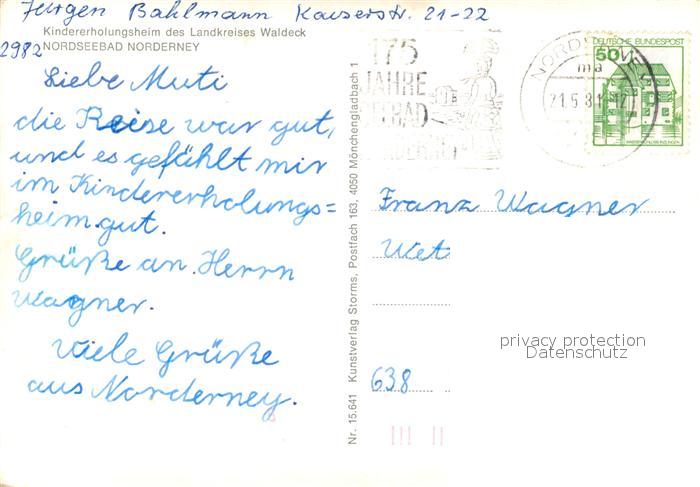 Jürgen Bahlmann Kaiserstr. 21-22
Kindererholungsheim des Landkreises Waldeck
2982 NORDSEEBAD NORDERNEY
Liebe Muti
die Reise war gut,
und es gefählt mir
im Kindererholungs=
heim gut.
Grüße an Herrn
Wagner.
Viele Grüße
aus Norderney.
Nr. 15.641 Kunstverlag Storms, Postfach 163, 4050 Mönchengladbach 1
175
JAHRE
NORDS
ma
21.5.81-12
DEUTSCHE BUNDESPOST
50
Franz Wagner
Wet
638
privacy protection
Datenschutz